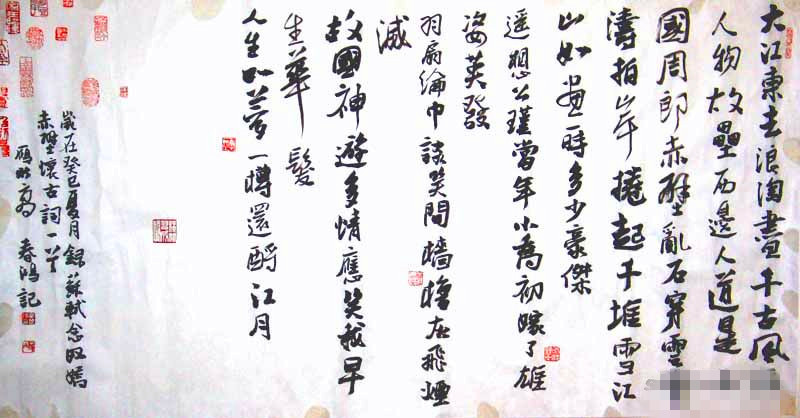 大江東去浪淘盡千古風
人物故壘西邊人道是
國周郎赤壁亂石穿雲
濤拍岸捲起千堆雪江
山如畫一時多少豪傑
遥想公瑾當年小喬初嫁了雄
姿英發
羽扇綸巾談笑間檣櫓灰飛煙
滅
故國神遊多情應笑我早
生華髮
人生如夢一樽還酹江月
歲在癸巳夏月錄蘇軾念奴嬌
赤壁懷古詞一首
春鴻記